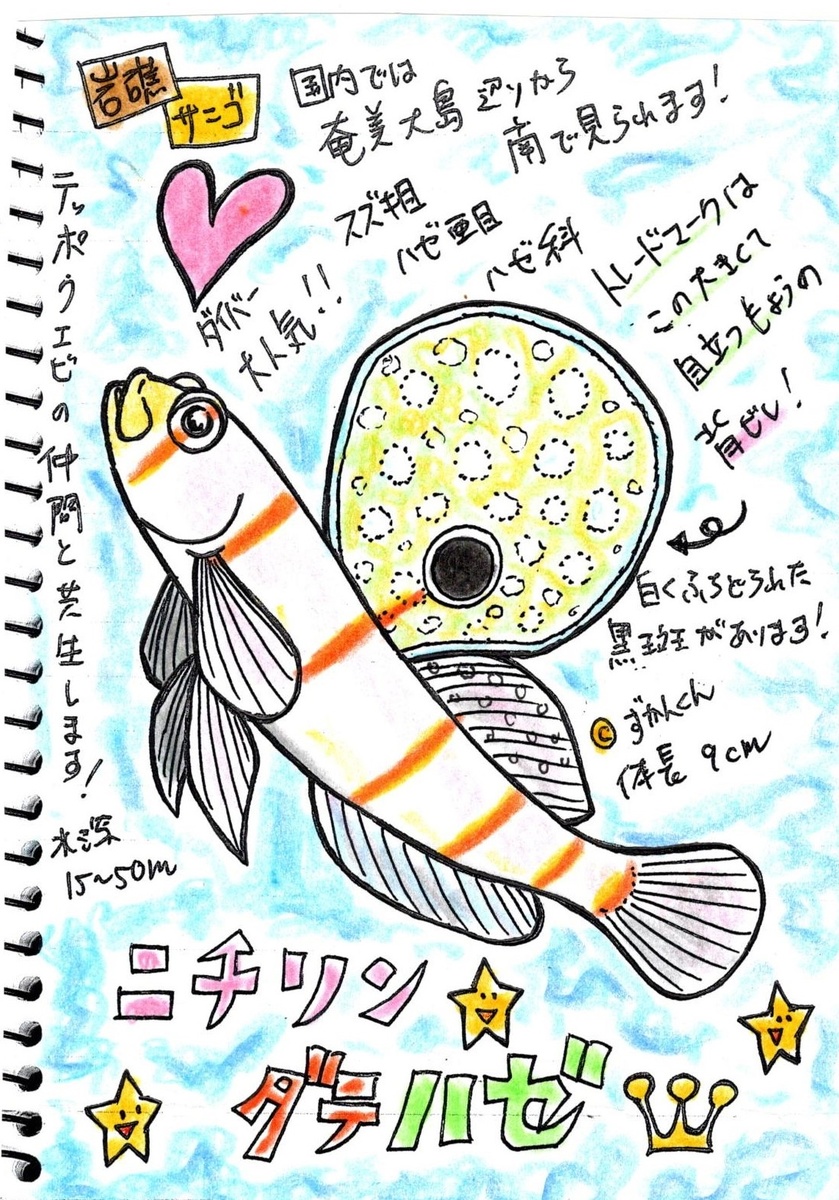 岩礁
サンゴ
国内では
奄美大島辺りから
南で見られます!
スズキ目
ハゼ亜目
ハゼ科
ダイバー
大人気!!
トレードマークは
この大きくて
目立つもようの
背ビレ!
白くふちどられた
黒斑があります!
© ずかんくん
体長 9cm
テッポウエビの仲間と共生します!
水深
15~50m
ニチリン
ダテハゼ